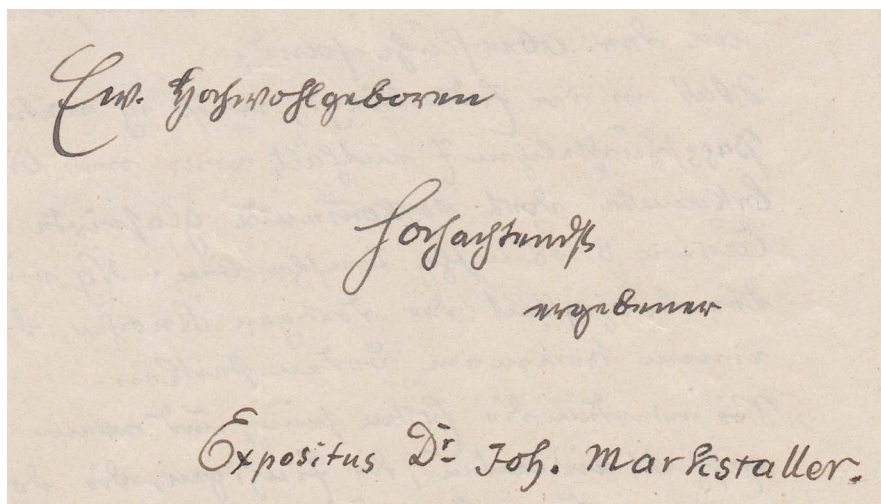 Ew. Hochwohlgeboren
hochachtendst
ergebener
Expositus Dr. Joh. Markstaller.